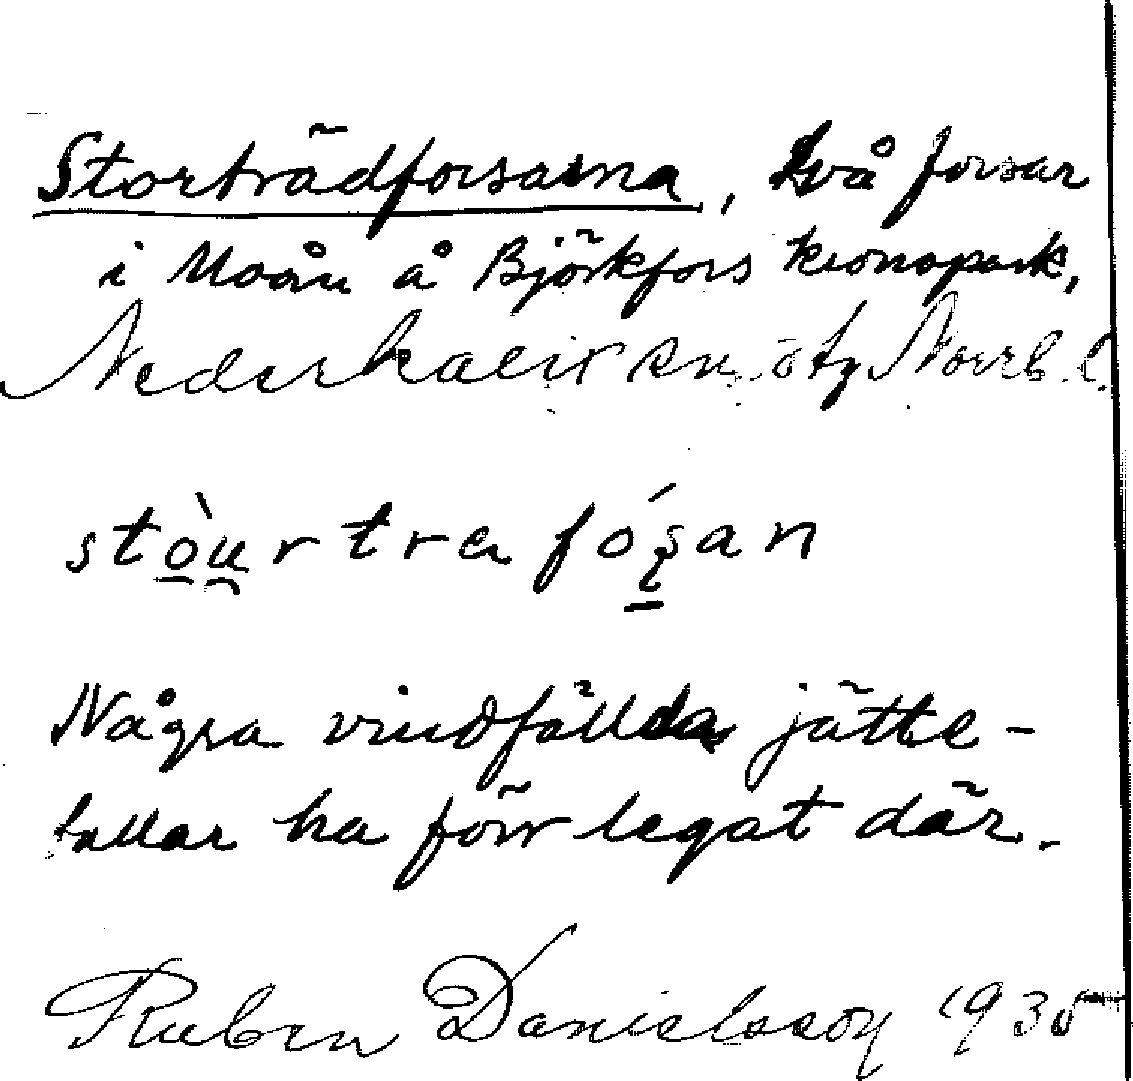 Storträdforsarna, två forsar
i Moån å Björkfors kronopark,
Nederkalix sn. ö tg Norrb. l.
stòurtrafósan
Några vindfällda jätte-
tallar ha förr legat där.
Ruben Danielsson 1935